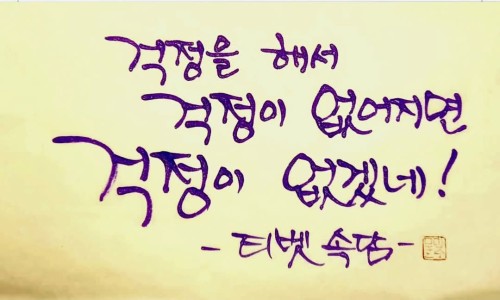 걱정을 해서
걱정이 없어지면
걱정이 없겠네!
- 티벳 속담 -